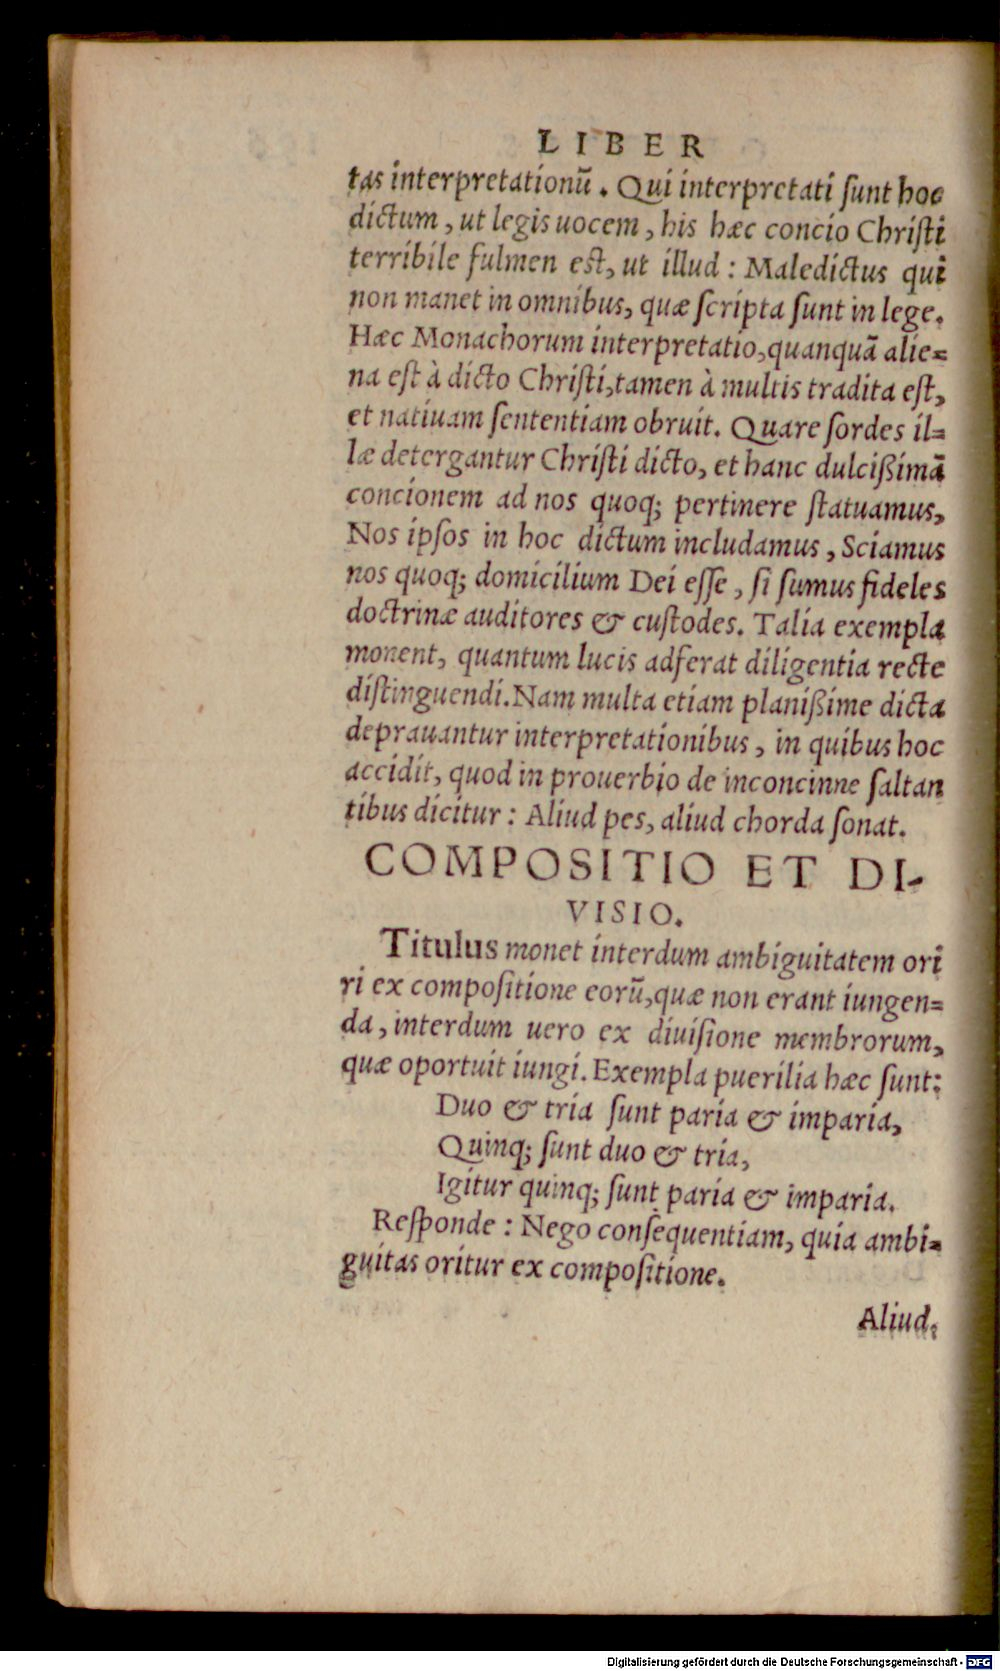 LIBER
tas interpretationũ. Qui interpretati ſunt hoc
dictum, ut legis uocem, his hæc concio Chriſti
terribile fulmen eſt, ut illud: Maledictus qui
non manet in omnibus, quæ ſcripta ſunt in lege.
Hæc Monachorum interpretatio, quanquã alie=
na eſt à dicto Chriſti, tamen à multis tradita eſt,
et natiuam ſententiam obruit. Quare ſordes il=
læ detergantur Chriſti dicto, et hanc dulcißimã
concionem ad nos quoq; pertinere ſtatuamus,
Nos ipſos in hoc dictum includamus, Sciamus
nos quoq; domicilium Dei eſſe, ſi ſumus fideles
doctrinæ auditores & cuſtodes. Talia exempla
monent, quantum lucis adferat diligentia recte
diſtinguendi. Nam multa etiam planißime dicta
deprauantur interpretationibus, in quibus hoc
accidit, quod in prouerbio de inconcinne ſaltan
tibus dicitur: Aliud pes, aliud chorda ſonat.
COMPOSITIO ET DI-
VISIO.
Titulus monet interdum ambiguitatem ori
ri ex compoſitione eorũ, quæ non erant iungen=
da, interdum uero ex diuiſione membrorum,
quæ oportuit iungi. Exempla puerilia hæc ſunt:
Duo & tria ſunt paria & imparia,
Quinq; ſunt duo & tria,
Igitur quinq; ſunt paria & imparia.
Reſponde: Nego conſequentiam, quia ambi=
guitas oritur ex compoſitione.
Aliud.
Digitalisierung gefördert durch die Deutsche Forschungsgemeinschaft - DFG